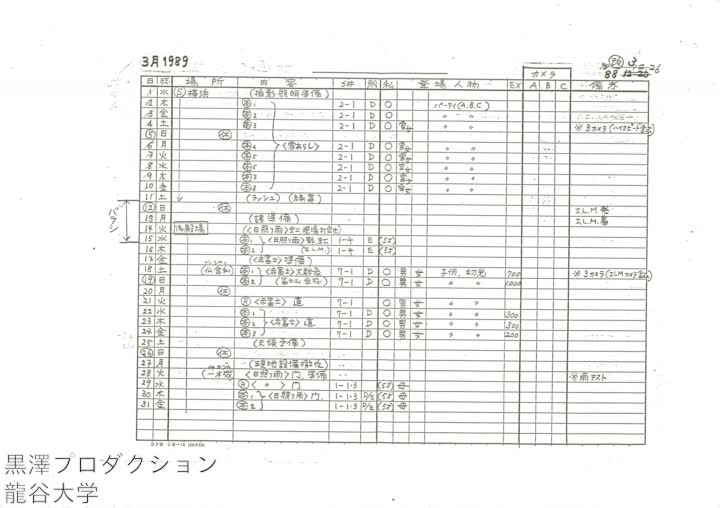 3月1989
88
カメラ
日 曜 場所 内容 S# 所 私 登場人物 EX A B C 備考
1 水 横浜 (撮影照明準備)
2 木 本1 2-1 D ○ パーティ(A.B.C)
3 金 本2 2-1 D ○ 〃 〃
4 土 本3 2-1 D ○ 雪女 〃 〃 ※3カメラ(ハイスピード含む)
5 日 休
6 月 本4 <雪あらし> 2-1 D ○ 雪女 〃 〃
7 火 本5 2-1 D ○ 雪女 〃 〃
8 水 本6 2-1 D ○ 雪女 〃 〃
9 木 本7 2-1 D ○ 雪女 〃 〃
10 金 本8 2-1 D ○ 雪女 〃 〃
11 土 (ラッシュ)
12 日 休 I.L.M発
バラシ
13 月 (諸準備) I.L.M.着
14 火 御殿場
15 水 本1 <日照り雨> 1-4 E
16 木 本2 (I.L.M.) 1-4 E
17 金 (<赤富士>準備)
18 土 本1 <赤富士> 7-1 D ○ 男 女 子供、幼児 700 ※3カメラ(ILMカメラ含む)
19 日 本2 (富士山合成) 7-1 D ○ 男 女 〃 〃 1000
20 月 休
21 火 <赤富士>道 7-1 ○ 男 女 〃 〃
22 水 本1 7-1 D ○ 男 女 〃 〃 300
23 木 本2 <赤富士>道 7-1 D ○ 男 女 〃 〃 300
24 金 本3 7-1 D ○ 男 女 〃 〃 200
25 土 (天候予備)
26 日 休
27 月 (現地設備撤収)
28 火 <日照り雨>門、準備 ※雨テスト
29 水 < 〃 >門 1-1·3 母
30 木 本1 <日照り雨>門、 1-1·3 D/E 母
31 金 本2 1-1·3 D/E 母
黒澤プロダクション
龍谷大学